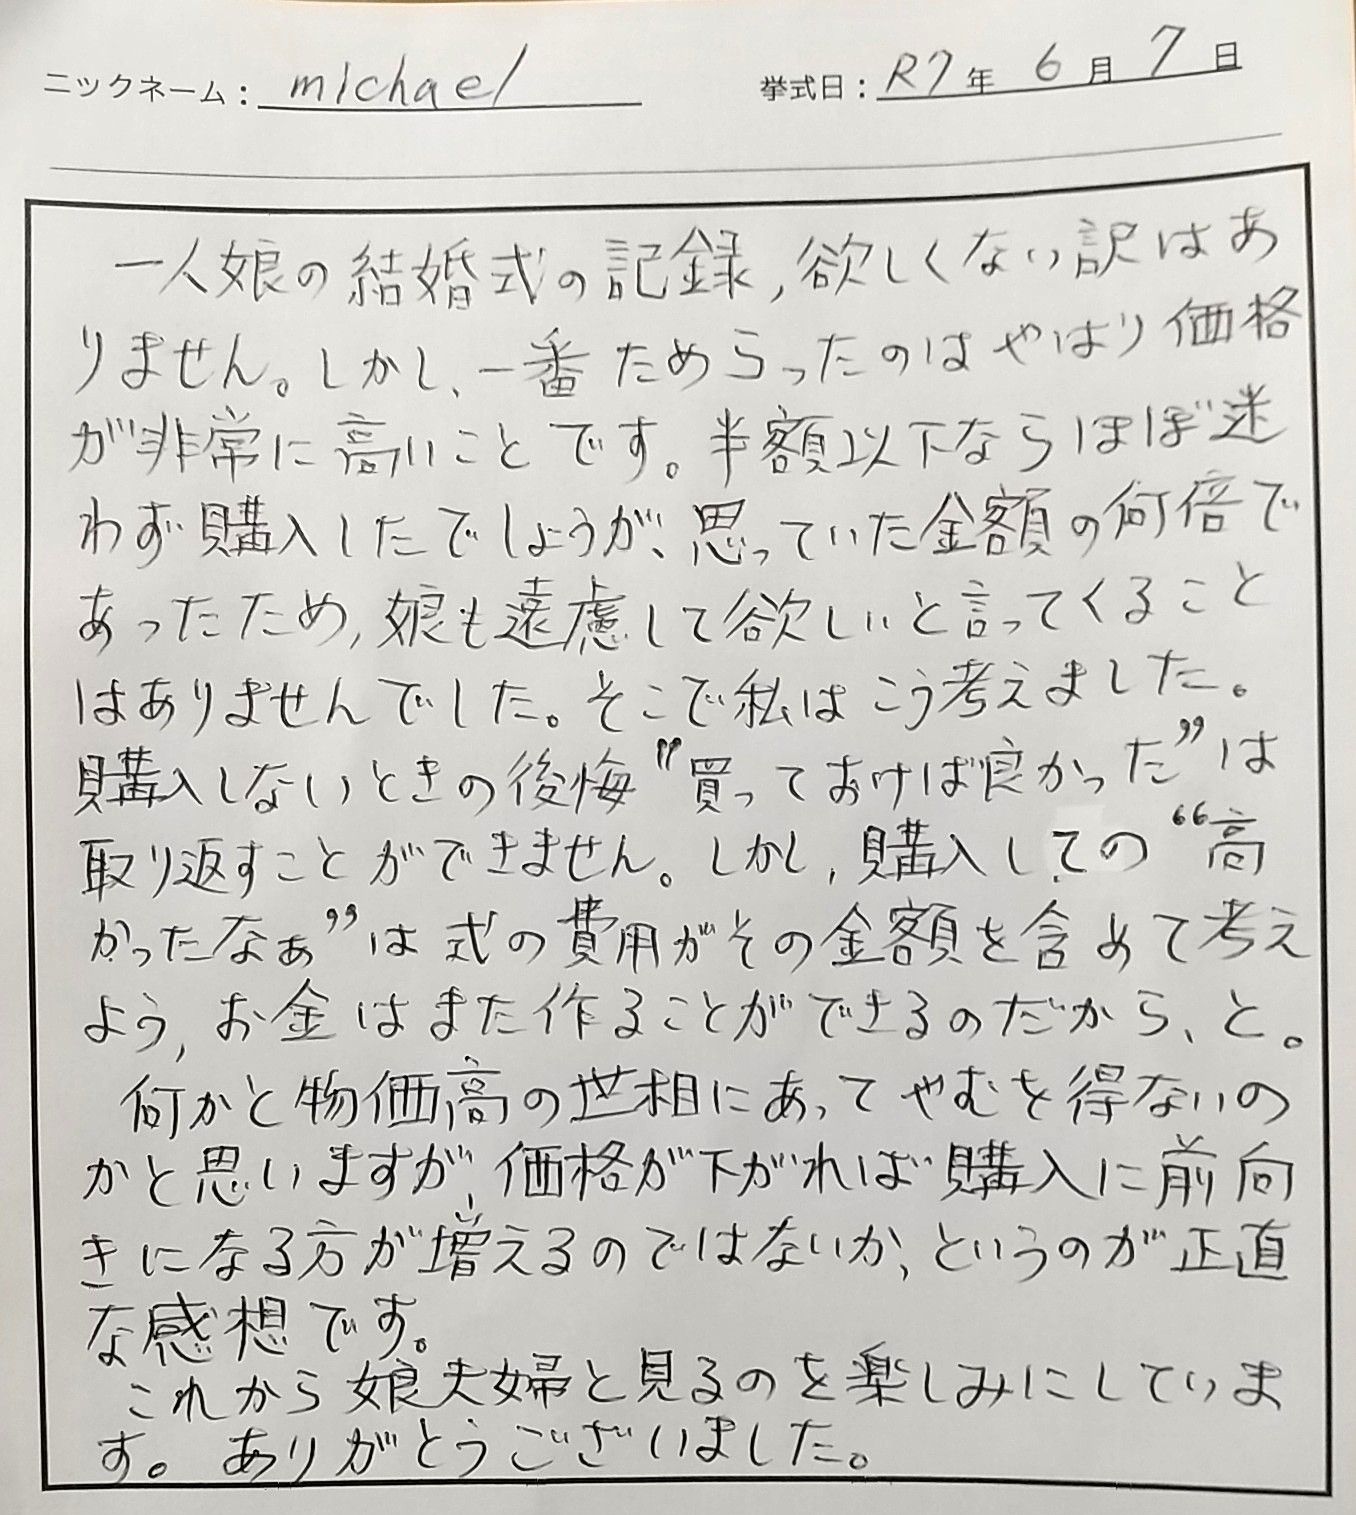 ニックネーム：michael 挙式日：R7年 6月 7日
一人娘の結婚式の記録,欲しくない訳はあ
りません。しかし、一番ためらったのはやはり価格
が非常に高いことです。半額以下ならほぼ迷
わず購入したでしょうが、思っていた金額の何倍で
あったため,娘も遠慮して欲しいと言ってくること
はありませんでした。そこで私はこう考えました。
購入しないときの後悔"買っておけば良かった"は
取り返すことができません。しかし,購入しての“高
かったなぁ”は式の費用がその金額を含めて考え
よう,お金はまた作ることができるのだから、と。
何かと物価高の世相にあってやむを得ないの
かと思いますが,価格が下がれば購入に前向
きになる方が増えるのではないか、というのが正直
な感想です。
これから娘夫婦と見るのを楽しみにしていま
す。ありがとうございました。